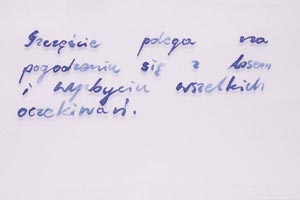 Szczęście polega na
pogodzeniu się z losem
i wyzbyciu wszelkich
oczekiwań.